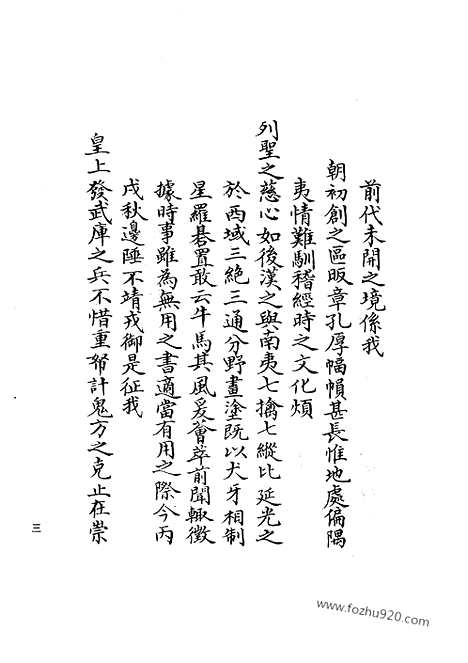 前代未開之境係我
朝初創之區昄章孔厚幅幀甚長惟地處偏隅
夷情難馴稽經時之文化煩
列聖之慈心如後漢之與南夷七擒七縱比延光之
於西域三絕三通分野畫塗既以犬牙相制
星羅碁置敢云牛馬其風爰薈萃前聞輙徵
據時事雖為無用之書適當有用之際今丙
戌秋邊陲不靖戎御是征我
皇上發武庫之兵不惜重帑計鬼方之克止在崇
三
www.fozhu920.com